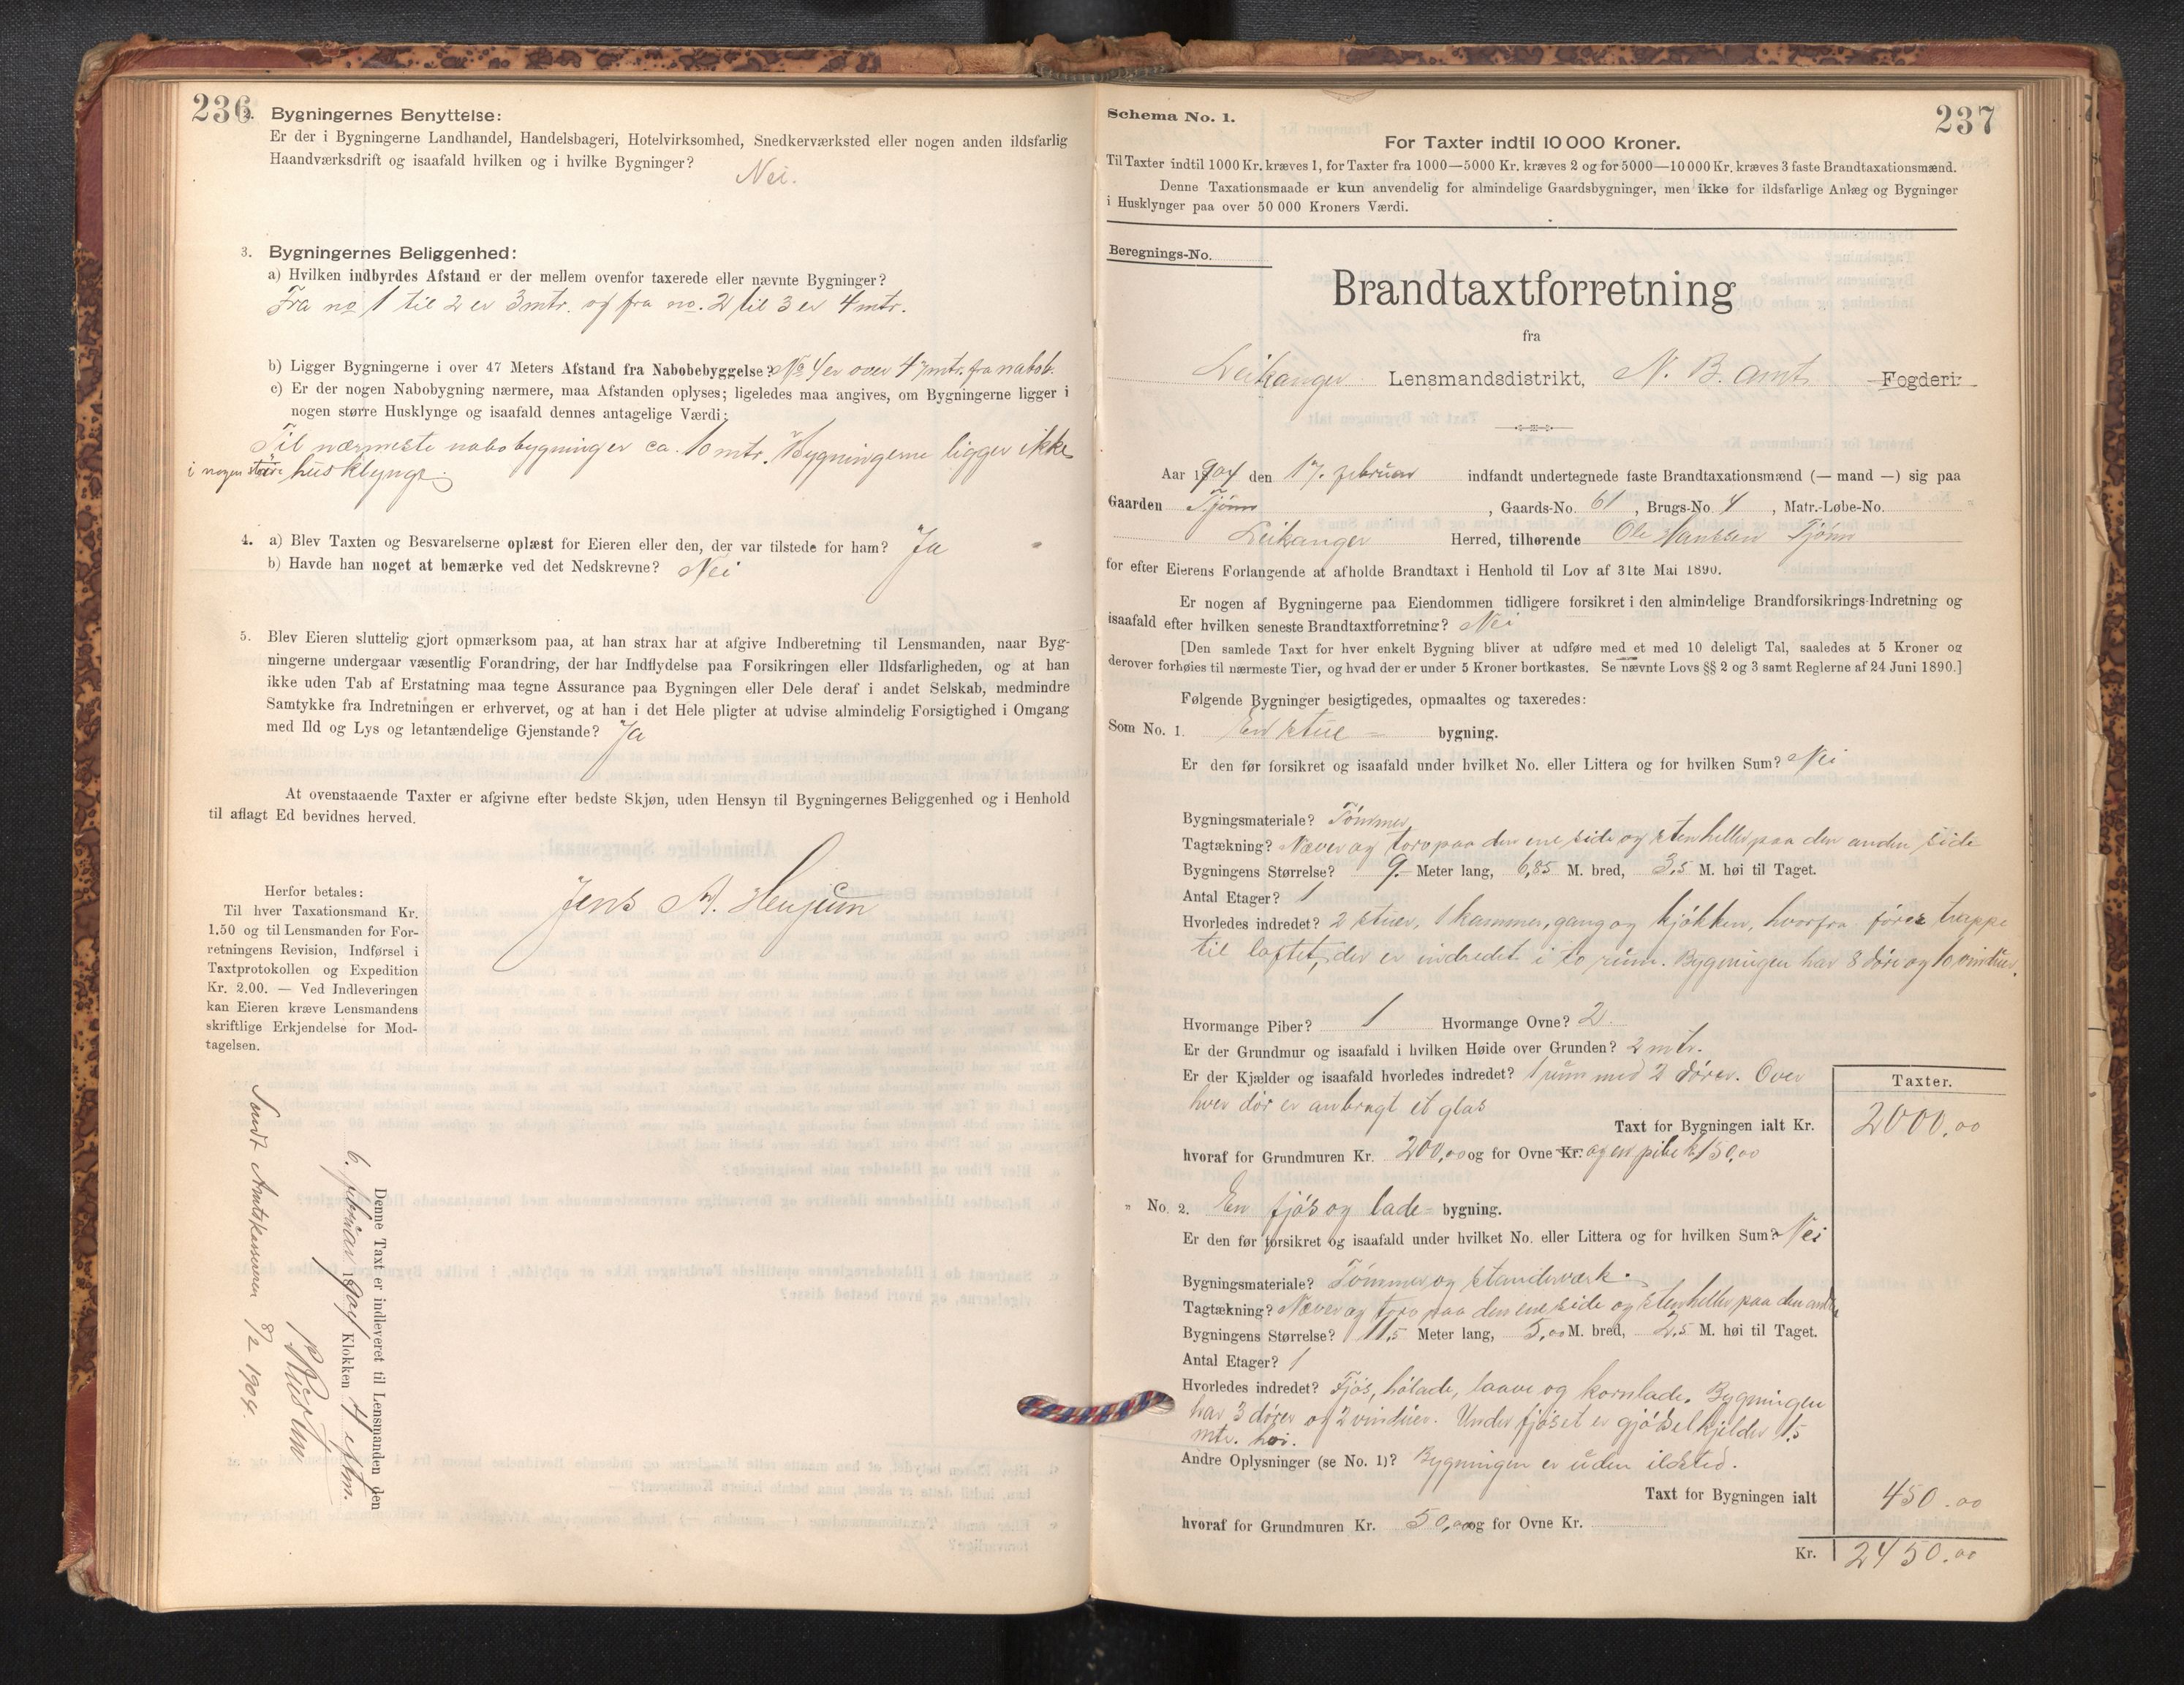 236
2. Bygningernes Benyttelse:
Er der i Bygningerne Landhandel, Handelsbageri, Hotelvirksomhed, Snedkerværksted eller nogen anden ildsfarlig
Haandværksdrift og isaafald hvilken og i hvilke Bygninger?
Nei.
3. Bygningernes Beliggenhed:
a) Hvilken indbyrdes Afstand er der mellem ovenfor taxerede eller nævnte Bygninger?
Fra no 1 til 2 er 3 mtr. og fra no. 2 til 3 er 4 mtr.
b) Ligger Bygningerne i over 47 Meters Afstand fra Nabobebyggelse? No 4 er over 47 mtr. fra nabob.
c) Er der nogen Nabobygning nærmere, maa Afstanden oplyses; ligeledes maa angives, om Bygningerne ligger i
nogen større Husklynge og isaafald dennes antagelige Værdi:
Til nærmeste nabobygning er ca. 10 mtr. Bygningerne ligger ikke
i nogen større husklynge.
4. a) Blev Taxten og Besvarelserne oplæst for Eieren eller den, der var tilstede for ham? Ja
b) Havde han noget at bemærke ved det Nedskrevne? Nei
5. Blev Eieren sluttelig gjort opmærksom paa, at han strax har at afgive Indberetning til Lensmanden, naar Byg-
ningerne undergaar væsentlig Forandring, der har Indflydelse paa Forsikringen eller Ildsfarligheden, og at han
ikke uden Tab af Erstatning maa tegne Assurance paa Bygningen eller Dele deraf i andet Selskab, medmindre
Samtykke fra Indretningen er erhvervet, og at han i det Hele pligter at udvise almindelig Forsigtighed i Omgang
med Ild og Lys og letantændelige Gjenstande? Ja
At ovenstaaende Taxter er afgivne efter bedste Skjøn, uden Hensyn til Bygningernes Beliggenhed og i Henhold
til aflagt Ed bevidnes herved.
Jens A. Henjum
Herfor betales:
Til hver Taxationsmand Kr.
1.50 og til Lensmanden for For-
retningens Revision, Indførsel i
Taxtprotokollen og Expedition
Kr. 2.00. — Ved Indleveringen
kan Eieren kræve Lensmandens
skriftlige Erkjendelse for Mod-
tagelsen.
Denne Taxt er indleveret til Lensmanden den
6. februar 1904 Klokken 4 eftm.
Sendt Amtskassereren 8/2 1904.
237
Schema No. 1.
For Taxter indtil 10 000 Kroner.
Til Taxter indtil 1000 Kr. kræves 1, for Taxter fra 1000—5000 Kr. kræves 2 og for 5000—10 000 Kr. kræves 3 faste Brandtaxationsmænd.
Denne Taxationsmaade er kun anvendelig for almindelige Gaardsbygninger, men ikke for ildsfarlige Anlæg og Bygninger
i Husklynger paa over 50 000 Kroners Værdi.
Beregnings-No.
Brandtaxtforretning
fra
Leikanger Lensmandsdistrikt, N. B. amt Fogderi
Aar 1904 den 17. februar indfandt undertegnede faste Brandtaxationsmænd (— mand —) sig paa
Gaarden Tjønn, Gaards-No. 61, Brugs-No. 4, Matr.-Løbe-No.
Leikanger Herred, tilhørende Ole Hanssen Tjønn
for efter Eierens Forlangende at afholde Brandtaxt i Henhold til Lov af 31te Mai 1890.
Er nogen af Bygningerne paa Eiendommen tidligere forsikret i den almindelige Brandforsikrings-Indretning og
isaafald efter hvilken seneste Brandtaxtforretning? Nei
[Den samlede Taxt for hver enkelt Bygning bliver at udføre med et med 10 deleligt Tal, saaledes at 5 Kroner og
derover forhøies til nærmeste Tier, og hvad der er under 5 Kroner bortkastes. Se nævnte Lovs §§ 2 og 3 samt Reglerne af 24 Juni 1890.]
Følgende Bygninger besigtigedes, opmaaltes og taxeredes:
Som No. 1. En stue - bygning.
Er den før forsikret og isaafald under hvilket No. eller Littera og for hvilken Sum? Nei
Bygningsmateriale? Tømmer
Tagtækning? Næver og torv paa den ene side og stenheller paa den anden side
Bygningens Størrelse? 9.- Meter lang, 6,85 M. bred, 3,5 M. høi til Taget.
Antal Etager? 1
Hvorledes indredet? 2 stuer, 1 kammer, gang og kjøkken, hvorfra fører trappe
til loftet, der er indredet i to rum. Bygningen har 8 døre og 10 vinduer.
Hvormange Piber? 1 Hvormange Ovne? 2
Er der Grundmur og isaafald i hvilken Høide over Grunden? 2 mtr.
Er der Kjælder og isaafald hvorledes indredet? 1 rum med 2 dører. Over
hver dør er anbragt et glas
Taxter.
Taxt for Bygningen ialt Kr. 2000.00
hvoraf for Grundmuren Kr. 200,00 og for Ovne Kr. og en pibe k 150,00
" No. 2. En fjøs og lade - bygning.
Er den før forsikret og isaafald under hvilket No. eller Littera og for hvilken Sum? Nei
Bygningsmateriale? Tømmer og standerværk.
Tagtækning? Næver og torv paa den ene side og stenheller paa den anden
Bygningens Størrelse? 11,5 Meter lang, 5,00 M. bred, 2,5 M. høi til Taget.
Antal Etager? 1
Hvorledes indredet? Fjøs, hølade, laave og kornlade. Bygningen
har 3 dører og 2 vinduer. Under fjøset er gjødselkjelder 1.5
mtr. høi.
Andre Oplysninger (se No. 1)? Bygningen er uden ildsted.
Taxt for Bygningen ialt 450.00
hvoraf for Grundmuren Kr. 50,00 og for Ovne Kr.
Kr. 2450.00